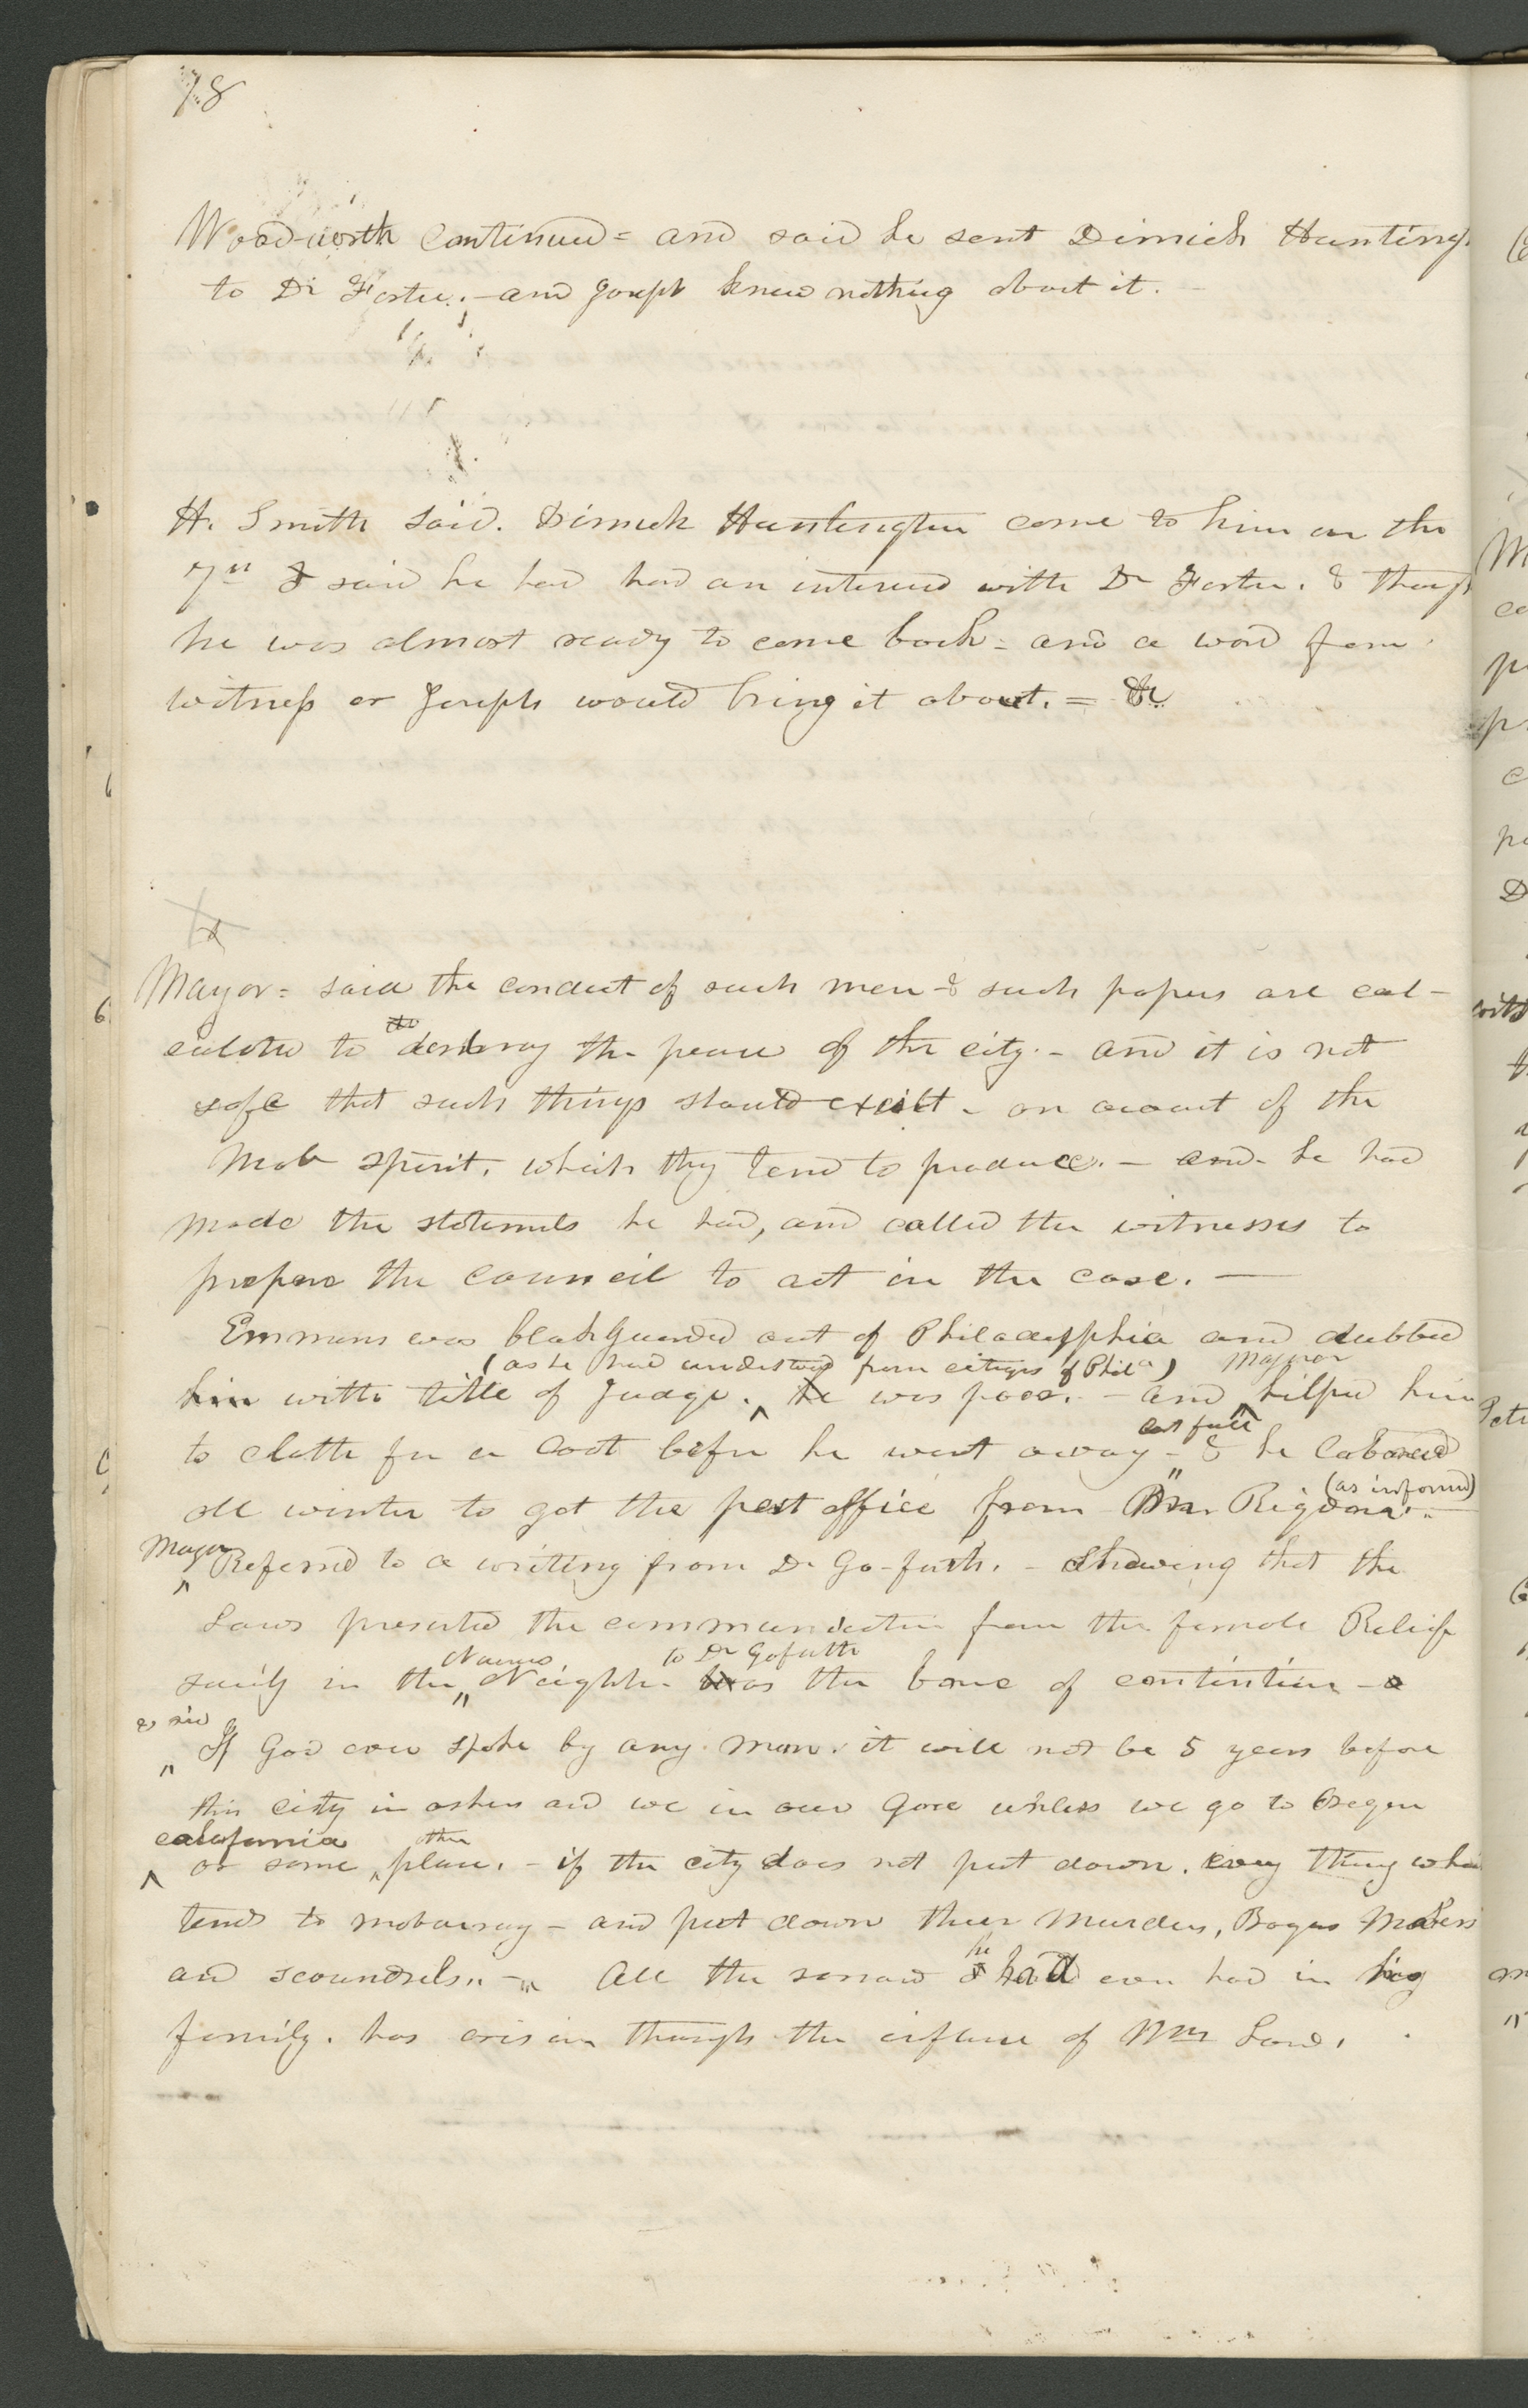 18
Woodworth continued = and said he sent Dimick Hunting
to Dr Foster. - and Joseph knew nothing about it. -
H. Smith said. Dimick Huntington come to him on the
7th & said he had had an interview with Dr Foster. & though
he was almost ready to come back = and a word from
witness or Joseph would bring it about. =
Mayor = said the conduct of such men & such papers are cal-
culated to destroy the peace of the city. - and it is not
safe that such things should exist - on account of the
mob spirit. which they tend to produce. - and he had
made the statements he had, and called the witnesses to
prepare the council to act in the case. —
Emmons was blackguarded out of Philadelphia and dubbed
(as he had understood from citizens of Phila) Mayor
him with title of Judge. ^ he was poor. - and ^ helped him
cast full
to cloth for a coat before he went away - & he labored
(as informed)
all winter to get the post office from Mr. Rigdon.
Mayor
^ Referred to a writing from Dr Go-forth. - shewing that the
Laws presented the communication from the female Relief
Nauvoo to Dr Goforth
society in the " Neighbor as the bone of contention -
& said
" If God ever spake by any man. it will not be 5 years before
this city in ashes and we in our gore unless we go to Oregon
california other
^ or some ^ place. - if the city does not put down. every thing which
tends to mobocracy - and put down their murders, Bogus Makers
and scoundrels. " - All the sorrow
he
had ever had in his
family. has arisen through the influence of Wm Law.